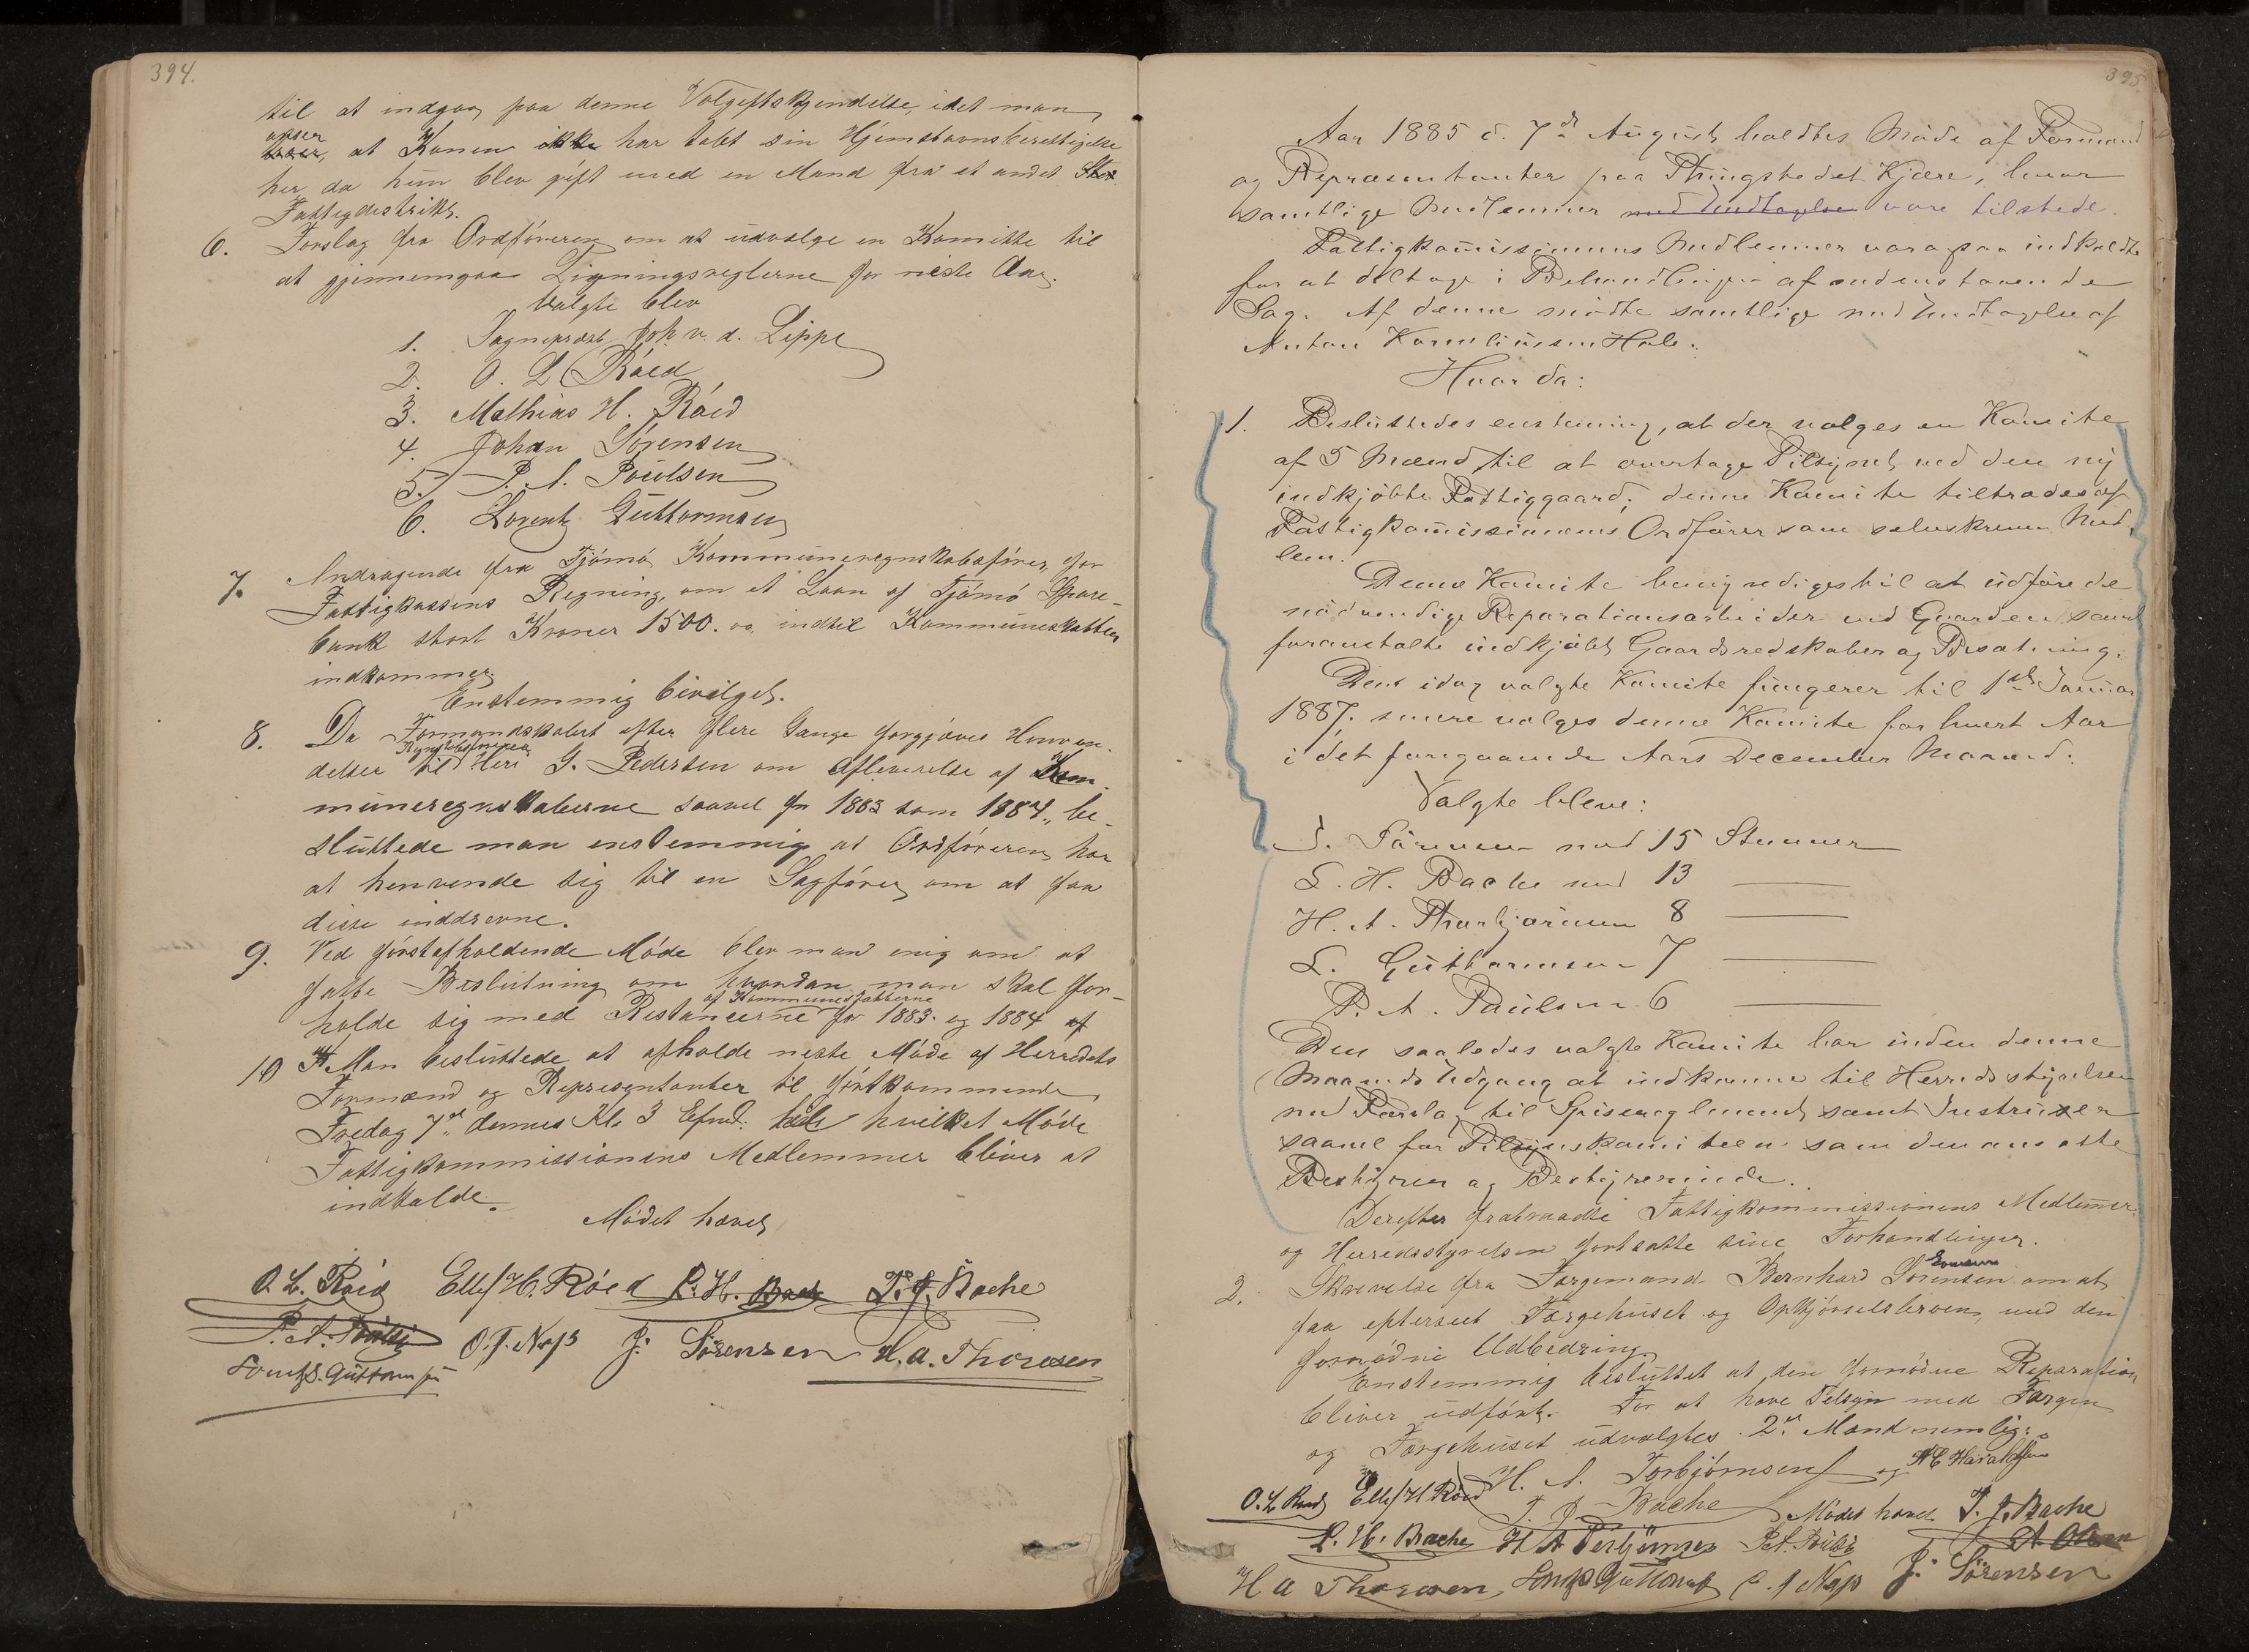 394.
til at indgaa paa denne Valgeftskjendelse, idet man
anser at Konen ikke har tabt sin Hjemstavnsberettigelse
her, da hun blev gift med en Mand fra et andet
Fattigdistrikt.
6. Forslag fra Ordføreren om at udvælge en Komitte til
at gjennemgaa Ligningsreglerne for næste Aar.
Valgte blev
1. Sogneprest Joh v. d. Lippe
2. O. L. Röed
3. Mathias H. Röed
4. Johan Sörensen
5. P. A. Poulsen
6. Lorentz Guttormsen
7. Andragende fra Tjömö Kommuneregnskabsförer, for
Fattigkassens Regning, om et Laan af Tjömö Spare-
bank stort Kroner 1500.00 indtil Kommuneskatten
indkommer
Enstemmig bevilget.
8. Da Formandskabet efter flere Gange forgjæves Henven-
Regnskabsförer
delser til Herr G. Pedersen om Afleverelse af Kom-
muneregnskaberne saavel for 1883 som 1884, be-
sluttede man enstemmig at Ordföreren har
at henvende sig til en Sagförer om at faa
disse inddrevne.
9. Ved förstafholdende Möde blev man enig om at
fatte Beslutning om hvordan man skal for-
af Kommuneskatterne
holde sig med Restancerne for 1883 og 1884
10 Man besluttede at afholde neste Möde af Herredets
Formænd og Representanter til förstkommende
Fredag 7de dennes Kl. 3 Efmd. til hvilket Möde
Fattigkommissionens Medlemmer bliver at
indkalde.
Mödet hævet
O. L. Röed Ellef H. Röed L. H. Bache T. J. Bache
P. A. Poulsen O. J. Næss J. Sörensen H. A. Thoresen
Lorentz Guttormsen
395
Aar 1885 d. 7de August holdtes Möde af Formænd
og Repræsentanter paa Thingstedet Kjære, hvor
samtlige Medlemmer med Undtagelse vare tilstede.
Fattigkommissionens Medlemmer var ogsaa indkaldte
for at deltage i Behandlingen af nedenstaaende
Sag. Af denne mödte samtlige med Undtagelse af
Anton Korneliussen Hole.
Hvor da:
1. Besluttedes enstemig, at der vælges en Komite
af 5 Mænd til at overtage Tilsynet med den ny
indkjöbte Fattiggaard; denne Komite tiltrædes af
Fattigkomissionens Ordförer som selvskreven Med-
lem.
Denne Komite bemyndiges til at udföre de
nödvendige Reparationsarbeider ved Gaarden samt
foranstalte indkjöbt Gaardsredskaber og Besætning.
Den idag valgte Komite fungerer til 1ste Januar
1887, senere vælges denne Komite for hvert Aar
i det foregaaende Aars December Maaned.
Valgte bleve:
J. Sörensen med 15 Stemmer
L. H. Bache med 13 ———
H. A. Thorbjörnsen 8 ———
L. Guthormsen 7 ———
P. A. Paulsen 6 ———
Den saaledes valgte Komite har inden denne
Maaneds Udgang at indkomme til Herredsstyrelsen
med Forslag til Spisereglement samt Instruxer
saavel for Tilsynskomiteen som den ansatte
Bestyrer og Bestyrerinde.
Derefter fratraadte Fattigkommissionens Medlemmer
og Herredsstyrelsen fortsatte sine Forhandlinger.
2. Skrivelse fra Færgemand Bernhard Sörensen om at
faa efterseet Færgehuset og Opkjörselsbroen, med den
fornödne Udbedring.
Enstemmig besluttet at den fornödne Reparation
bliver udfört. For at have Tilsyn med Færgen
og Færgehuset udvalgtes 2de Mænd nemlig:
H. A. Torbjörnsen og
T. J. Bache
Mödet hævet
O. L. Röed Ellef H. Röed T. J. Bache
L. H. Bache H A Torbjörnsen P. A. Poulsen A. Olsen
H A Thoresen Lorentz Guttormsen O. J. Næss J. Sörensen